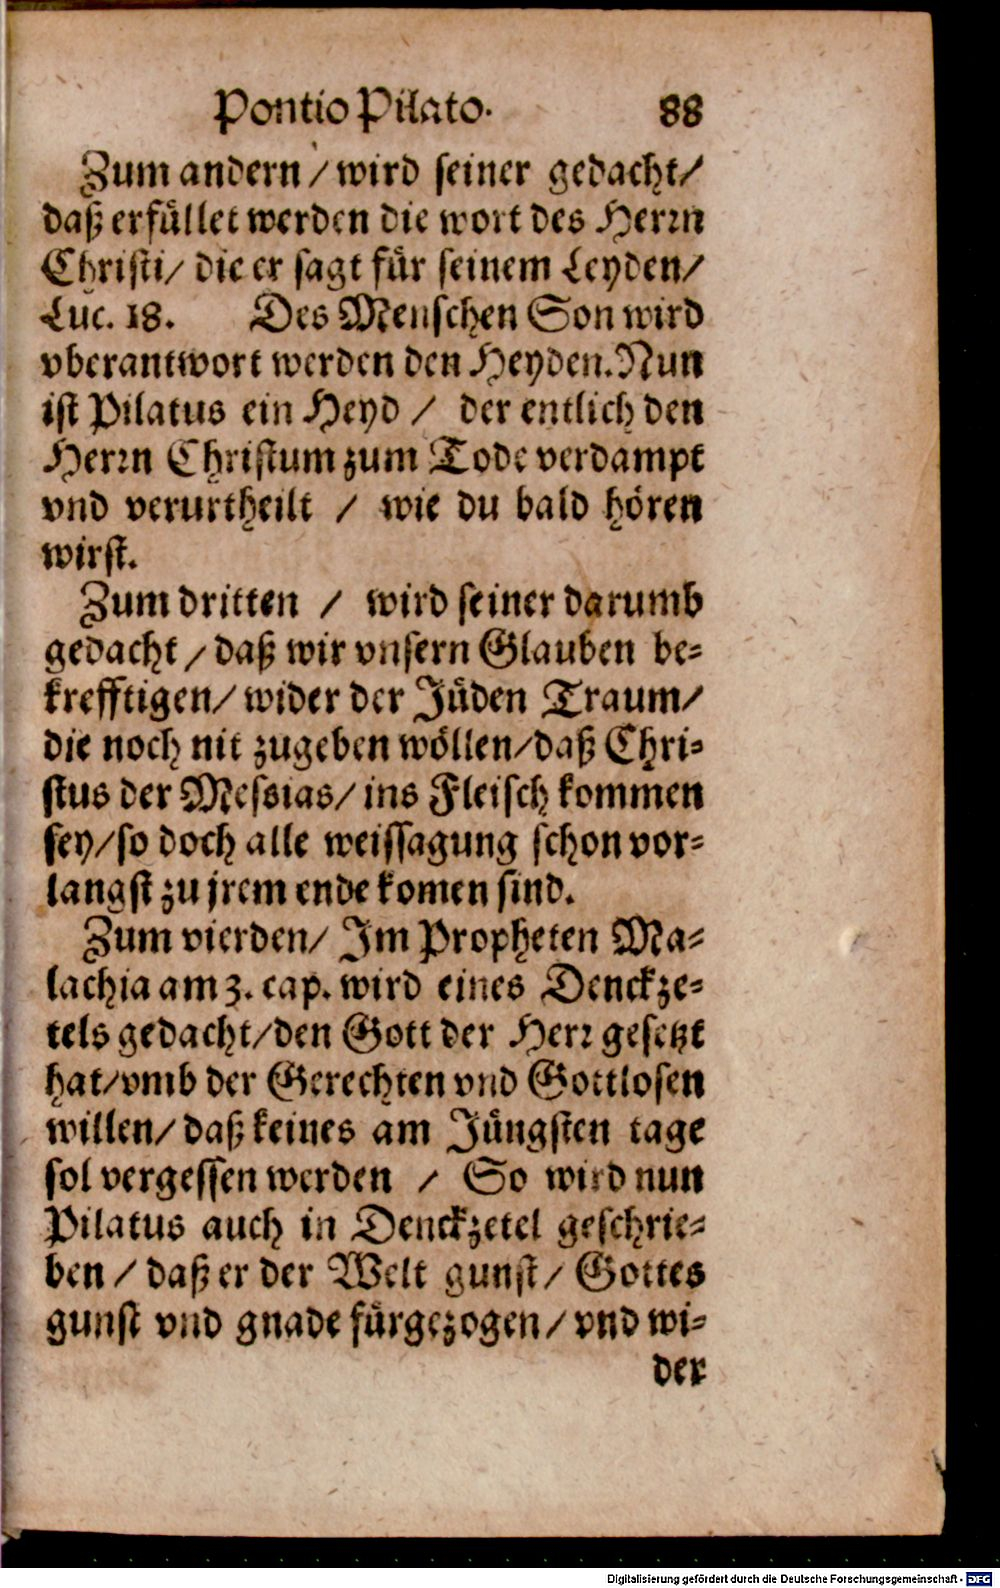 Pontio Pilato. 88
Zum andern / wird seiner gedacht/
daß erfüllet werden die wort des Herrn
Christi/ die er sagt für seinem Leyden/
Luc. 18. Des Menschen Son wird
vberantwort werden den Heyden. Nun
ist Pilatus ein Heyd / der entlich den
Herrn Christum zum Tode verdampt
vnd verurtheilt / wie du bald hören
wirst.
Zum dritten / wird seiner darumb
gedacht / daß wir vnsern Glauben be-
krefftigen/ wider der Jüden Traum/
die noch nit zugeben wöllen/daß Chri-
stus der Messias/ ins Fleisch kommen
sey/so doch alle weissagung schon vor-
langst zu jrem ende komen sind.
Zum vierden/ Im Propheten Ma-
lachia am 3. cap. wird eines Denckze-
tels gedacht/den Gott der Herr gesetzt
hat/vmb der Gerechten vnd Gottlosen
willen/ daß keines am Jüngsten tage
sol vergessen werden / So wird nun
Pilatus auch in Denckzetel geschrie-
ben / daß er der Welt gunst/ Gottes
gunst vnd gnade fürgezogen/ vnd wi-
der
Digitalisierung gefördert durch die Deutsche Forschungsgemeinschaft - DFG